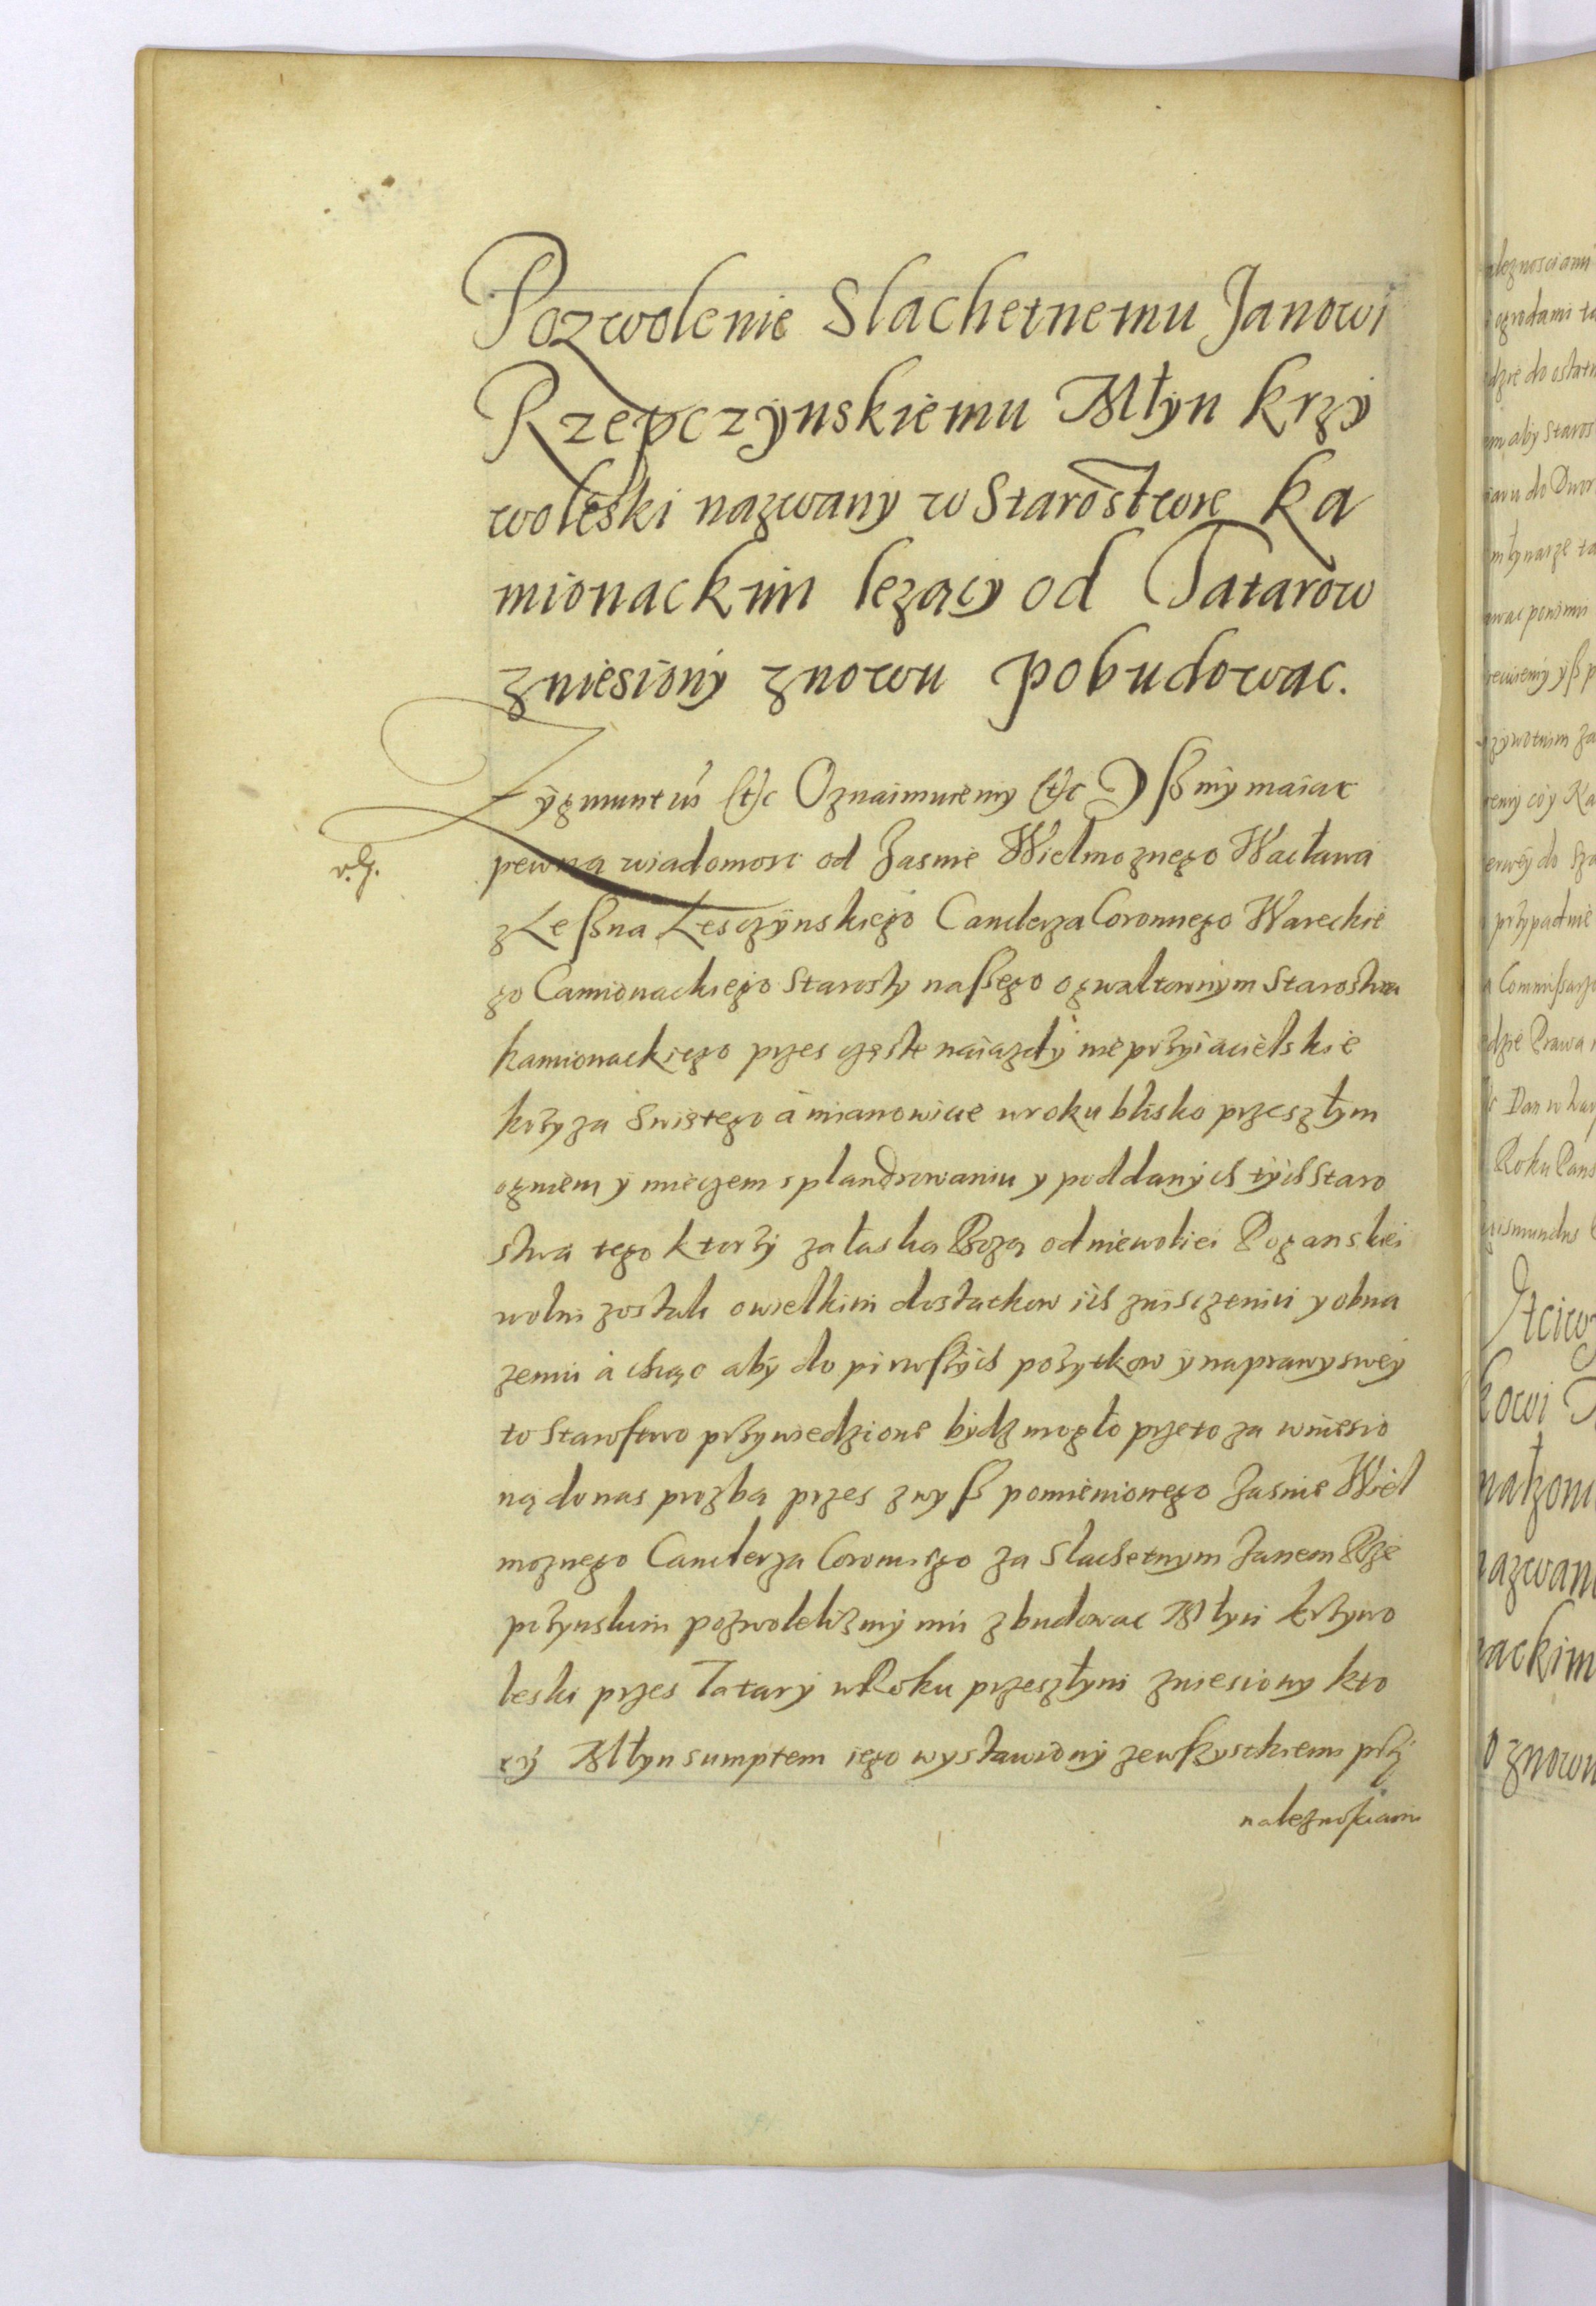 Pozwolenie Slachetnemu Janowi
Rzepczynskiemu Młyn krzy
woleski nazwany w Starostwie Ka
mionackim lezący od Tatarow
zniesiony znowu pobudowac.
Zygmuntus (t)c Oznaimuiemy (t)c Yß my maiac
pewną wiadomosc od Jasnie Wielmoznego Wacława
z Leßna Lesczynskiego Canclerza Coronnego Wareckie
go Camionackiego Starosty naßego o gwałtownym Starostwa
kamionackiego przes częste naiazdy nieprzyiacielskie
krzyza Swiętego a mianowicie w roku blisko przeszłym
ogniem y mieczem splandrowaniu y poddanych tych Staro
stwa tego ktorzy za łaską Bozą od niewoliei Poganskiei
wolni zostali o wielkim dostatkow ich zniszczeniu y obna
zeniu a chcąc aby do pirwßych pozytkow y naprawy swey
to Starostwo przywiedzione bydz mogło przeto za wniesio
ną do nas prozbą przes zwyß pomienionego Jasnie Wiel
moznego Canclerza Coronnego za Slachetnym Janem Rze
pczynskim pozwolelismy mu zbudowac Młyn krzywo
leski przes Tatary w Roku przeszłym zniesiony kto
ry Młyn sumptem iego wystawiony ze wßystkiemi przy
naleznosciami
v.g.
leznosciami
ogrodami ta
dzie do ostatn
aby Staros
do Dwor
młynarze ta
ponimi
yß p
zywotnim za
Ra
do
przypadnie
Commißarzo
dzie Prawa
Dan w
Roku Pans
gismundus
kowi
małzon
nazwan
nackim
o znowu